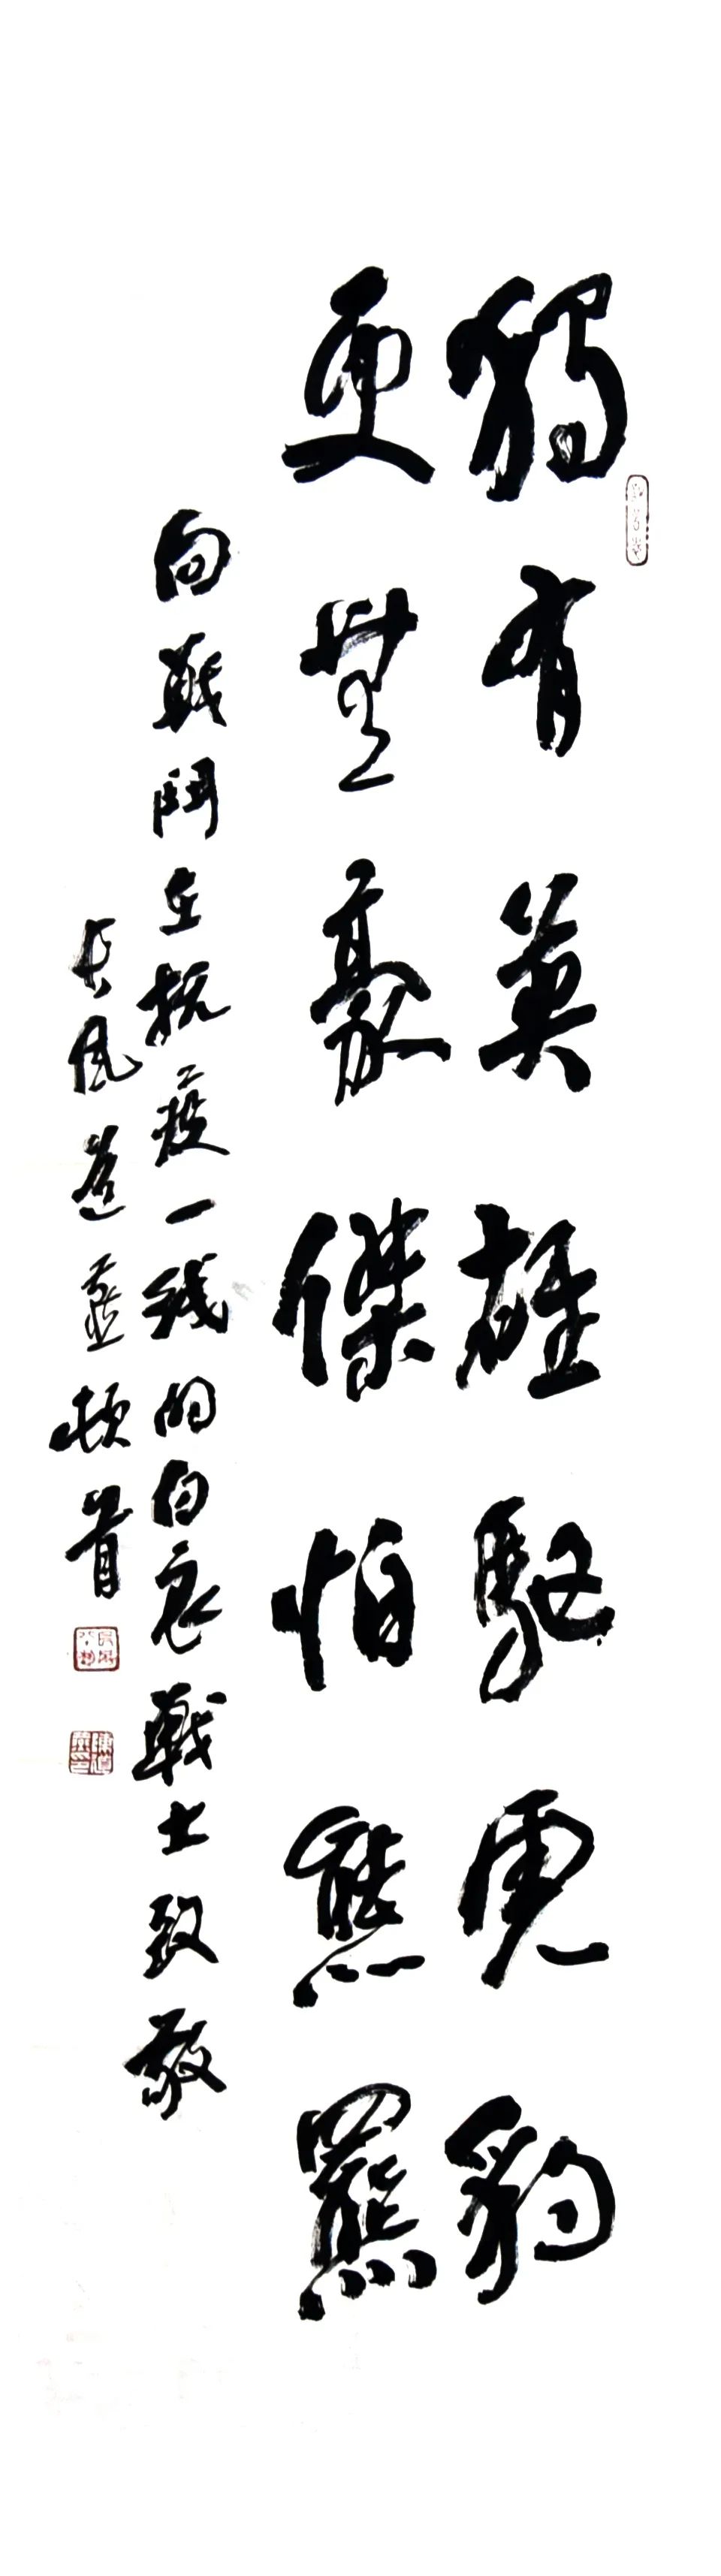 獨有英雄驅虎豹
更無豪傑怕熊羆
向戰鬥在抗疫一线的白衣戰士致敬
長風道蕴頓首